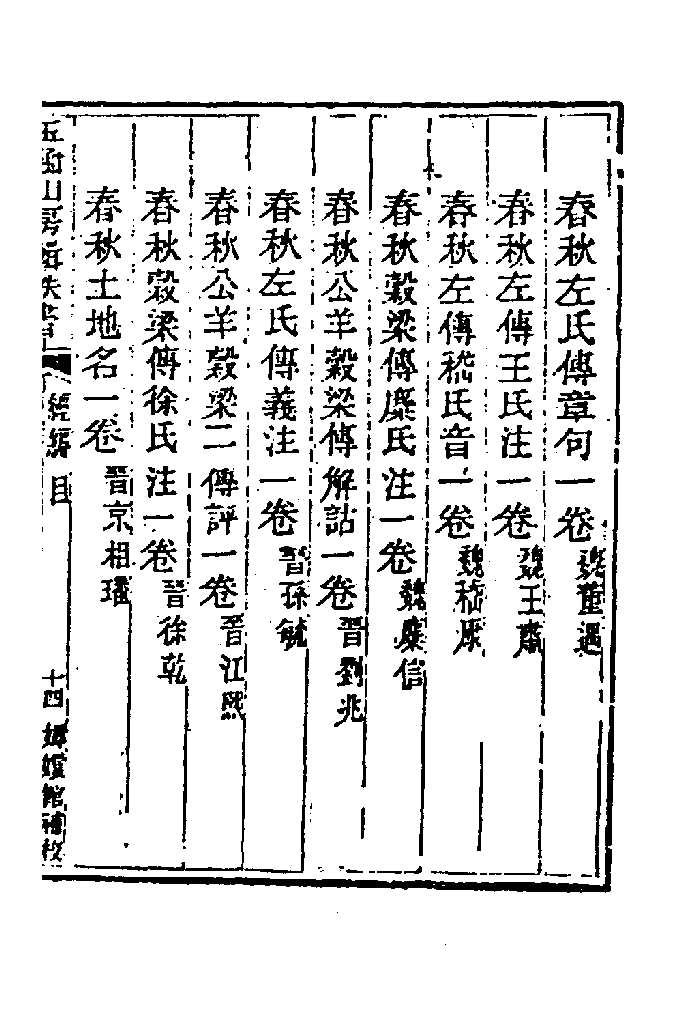 春秋左氏傳章句一卷魏董遇
春秋左傳王氏注一卷魏王肅
春秋左傳嵇氏音一卷魏嵇康
春秋穀梁傳糜氏注一卷魏糜信
春秋公羊穀梁傳解詁一卷晉劉兆
春秋左氏傳義注一卷晉孫毓
春秋公羊穀梁二傳評一卷晉江熙
春秋穀梁傳徐氏注一卷晉徐乾
春秋土地名一卷晉京相璠
玉函山房輯佚書 續編 目 十四 嫏嬛館補校